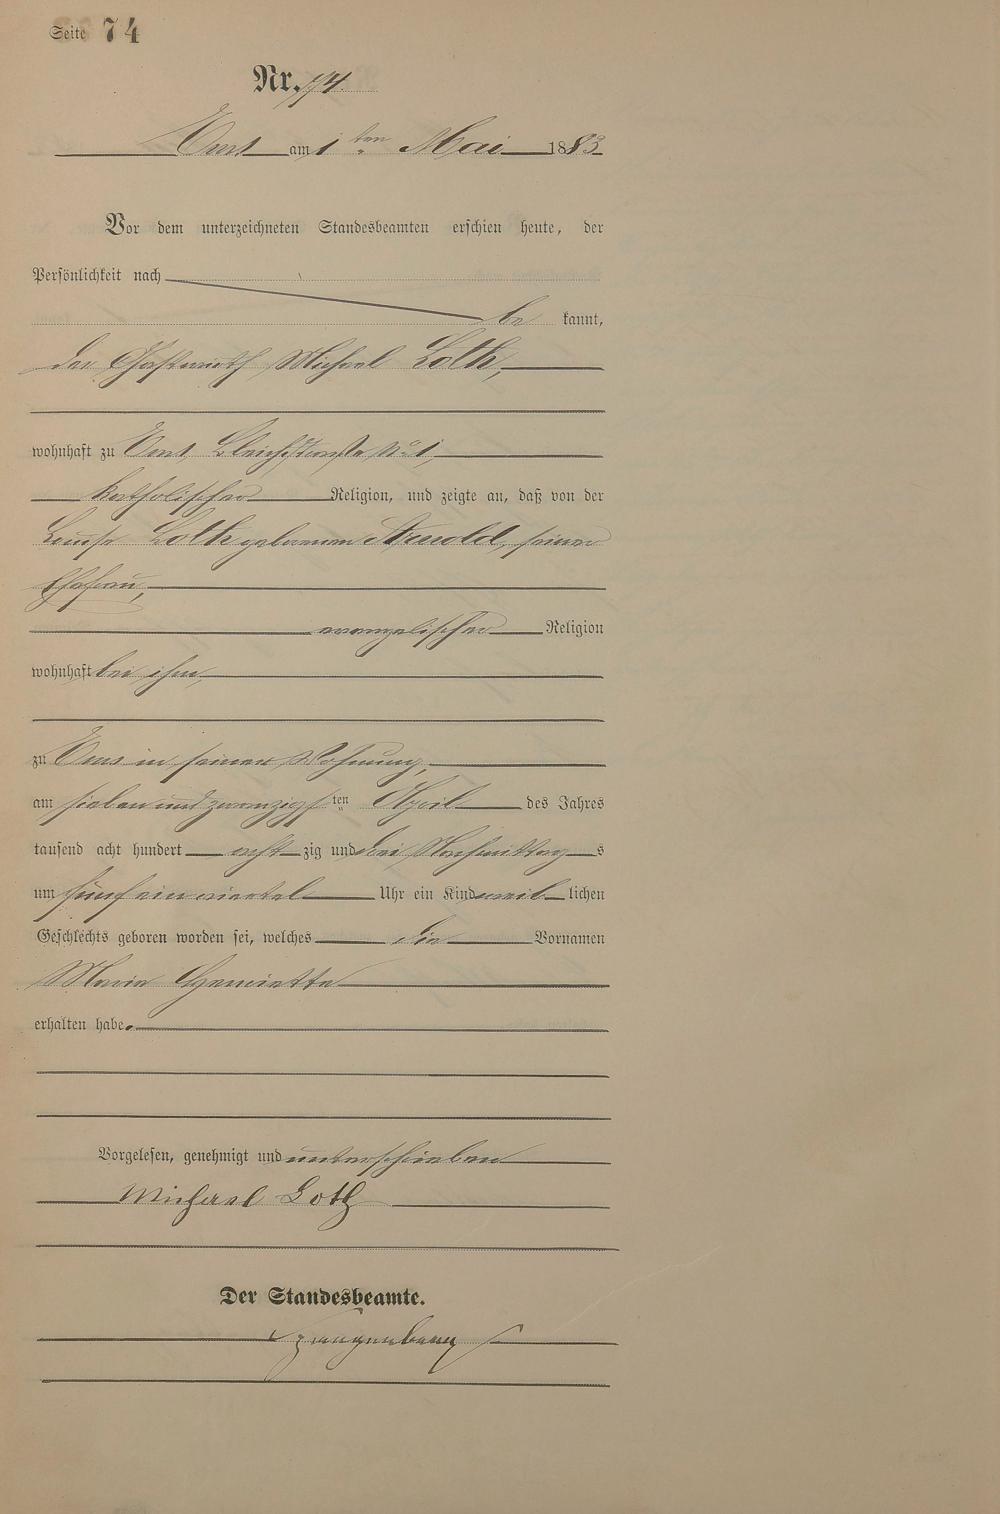 Seite 74
Nr. 74.
Ems am 1ten Mai 1883
Vor dem unterzeichneten Standesbeamten erschien heute, der
Persönlichkeit nach
be kannt,
der Gastwirth Michael Loth,
wohnhaft zu Ems, Bleichstraße No 1,
katholischer Religion, und zeigte an, daß von der
Louise Loth geborenen Arnold, seiner
Ehefrau,
evangelischer Religion
wohnhaft bei ihm,
zu Ems in seiner Wohnung,
am sieben und zwanzigsten April des Jahres
tausend acht hundert acht zig und drei Nachmittag s
um fünf ein viertel Uhr ein Kind weib lichen
Geschlechts geboren worden sei, welches die Vornamen
Maria Henriette
erhalten habe.
Vorgelesen, genehmigt und unterschrieben
Michael Loth
Der Standesbeamte.
Spangenberg